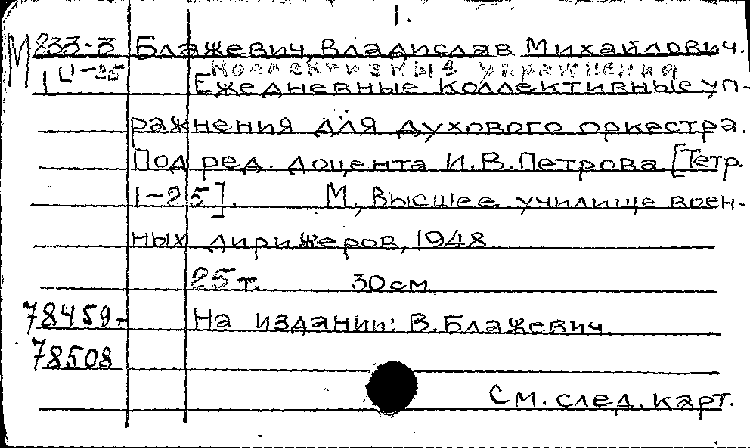 1.
М 233-3 Блажевич, Владислав Михайлович.
1Ц-25 Коллективные упражнения
Ежедневные коллективные уп-
ражнения для духового оркестра.
Под ред. доцента И.В.Петрова [Тетр.
1-25]. М, Высшее училище воен-
ных дирижеров, 1948
25 т. 30 см
78459- На издании: В.Блажевич
78508
См. след. карт.